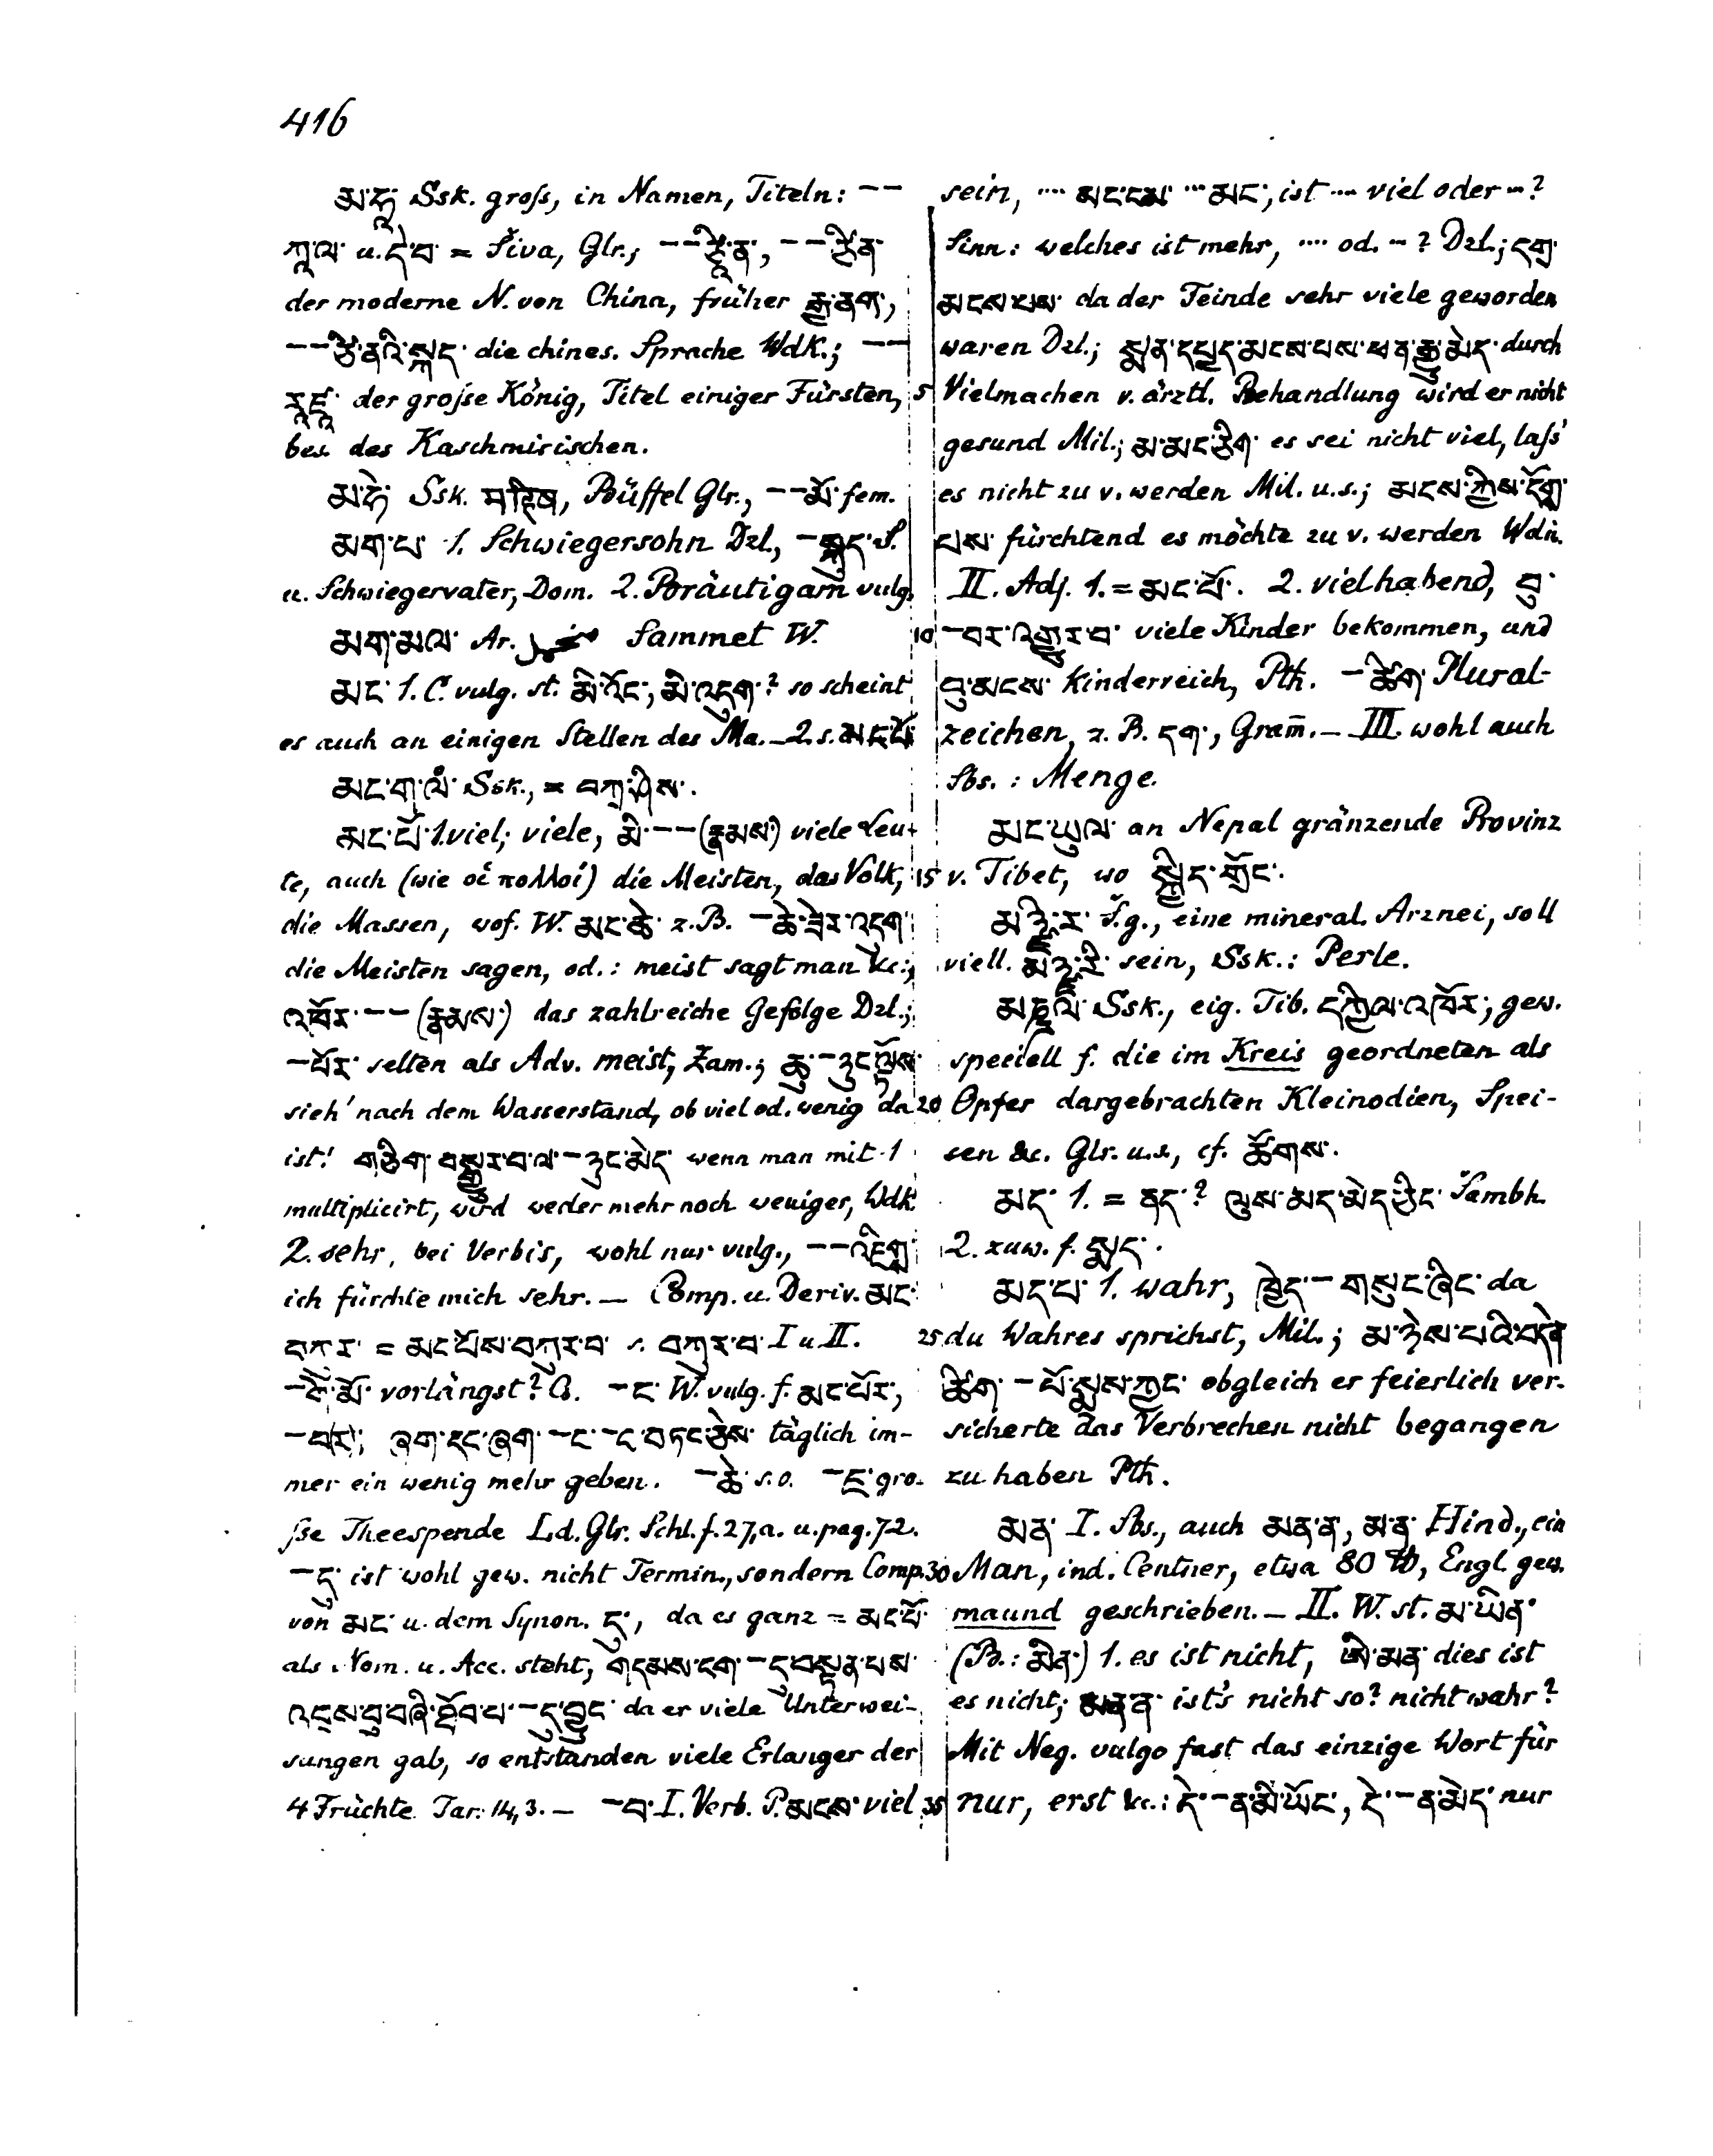 416
མ་ཧཱ་ Ssk. groſs, in Namen, Titeln: ——
ཀཱལ་ u. དེ་བ་ = Śiva, Glr.; ——ཙཱི་ན་, ——ཙིན་
der moderne N. von China, früher རྒྱ་ནག་,
——ཙི་ནའི་སྐད་ die chines. Sprache Wdk.; ——
རཱཛཱ་ der groſse König, Titel einiger Fürsten,
bes. des Kaschmirischen.
མ་ཧེ་ Ssk. महिष, Büffel Glr., ——མོ་ fem.
མག་པ་ 1. Schwiegersohn Dzl., — S.
u. Schwiegervater, Dom. 2. Bräutigam vulg.
མག་མལ་ Ar. Sammet W.
མང་ 1. C. vulg. st. མི་འོང་, མི་འདུག་? so scheint
es auch an einigen Stellen des Ma. — 2. s. མང་པོ་
མང་ག་ལཾ་ Ssk., = བཀྲ་ཤིས་.
མང་པོ་ 1. viel, viele, མི་——(རྣམས་) viele Leu-
te, auch (wie οἱ πολλοί) die Meisten, das Volk,
die Massen, vof. W. མང་ཆེ་ z.B. —ཆེ་ཟེར་འདུག་
die Meisten sagen, od.: meist sagt man &c.;
འཁོར་——(རྣམས་) das zahlreiche Gefolge Dzl.;
—པོར་ selten als Adv. meist, Zam.; ཆུ་—ཉུང་ལྟོས་
sieh' nach dem Wasserstand, ob viel od. wenig da
ist! གཅིག་བསྒྱུར་བ་ལ་—ཉུང་མེད་ wenn man mit 1
multiplicirt, wird weder mehr noch weniger, Wdk.
2. sehr, bei Verbis, wohl nur vulg., ——འཇིགས་
ich fürchte mich sehr. — Comp. u. Deriv. མང་
བཀུར་ = མང་པོས་བཀུར་བ་ s. བཀུར་བ་ I u II.
—རྔོ་མོ་ vorlängst? —ང་ W. vulg. f. མང་པོར་,
—བར་; ཞག་དང་ཞག་—ང་—ང་བཏང་ཅེས་ täglich im-
mer ein wenig mehr geben. —ཆེ་ s.o. —ཇ་ gro-
ſse Theespende Ld. Glr. Schl. f. 27,a. u. pag. 72.
—དུ་ ist wohl gew. nicht Termin., sondern Comp.
von མང་ u. dem Synon. དུ་, da es ganz = མང་པོ་
als Nom. u. Acc. steht, གདམས་ངག་—དུ་བསྟན་པས་
འབྲས་བུ་བཞི་ཐོབ་པ་—དུ་བྱུང་ da er viele Unterwei-
sungen gab, so entstanden viele Erlanger der
4 Früchte Tar. 14,3. — —བ་ I. Verb. P. མངས་ viel
sein, ···· མང་ངམ་ ··· མང་, ist ···· viel oder ···?
Sinn: welches ist mehr, ···· od. ···? Dzl.; དགྲ་
མངས་པས་ da der Feinde sehr viele geworden
waren Dzl.; སྨན་དཔྱད་མངས་པས་ཕན་རྒྱུ་མེད་ durch
5 Vielmachen v. ärztl. Behandlung wird er nicht
gesund Mil.; མ་མང་ཅིག་ es sei nicht viel, laſs'
es nicht zu v. werden Mil. u.s.; མངས་ཀྱིས་དོགས་
པས་ fürchtend es möchte zu v. werden Wdn.
II. Adj. 1. = མང་པོ་. 2. viel habend, བུ་
10 —བར་འགྱུར་བ་ viele Kinder bekommen, und
བུ་མངས་ kinderreich, Pth. —ཚིག་ Plural-
zeichen, z. B. དག་, Gram̄. — III. wohl auch
Sbs.: Menge.
མང་ཡུལ་ an Nepal gränzende Provinz
15 v. Tibet, wo སྐྱིད་གྲོང་.
མཉྫི་ར་ S.g., eine mineral. Arznei, soll
viell. sein, Ssk.: Perle.
མཎྜལ་ Ssk., eig. Tib. དཀྱིལ་འཁོར་, gew.
speciell f. die im Kreis geordneten als
20 Opfer dargebrachten Kleinodien, Spei-
sen &c. Glr. u.s., cf. ཚོགས་.
མད་ 1. = ནད་? ལུས་མད་མེད་ཅིང་ Śambh.
2. zuw. f. སྨད་.
མད་པ་ 1. wahr, ཁྱེད་—གསུང་ཞིང་ da
25 du Wahres sprichst, Mil.; མ་ཉེས་པའི་བདེན་
ཚིག་—པོ་སྨྲས་ཀྱང་ obgleich er feierlich ver-
sicherte das Verbrechen nicht begangen
zu haben Pth.
མན་ I. Sbs., auch མན་ན་, མ་ན་ Hind., ein
30 Man, ind. Centner, etwa 80 ℔, Engl. gew.
maund geschrieben. — II. W. st. མ་ཡིན་
(B.: མིན་) 1. es ist nicht, ཨི་མན་ dies ist
es nicht; མན་ན་ ist's nicht so? nicht wahr?
Mit Neg. vulgo fast das einzige Wort für
35 nur, erst &c.: དེ་—ན་མི་ཡོང་, དེ་—ན་མེད་ nur